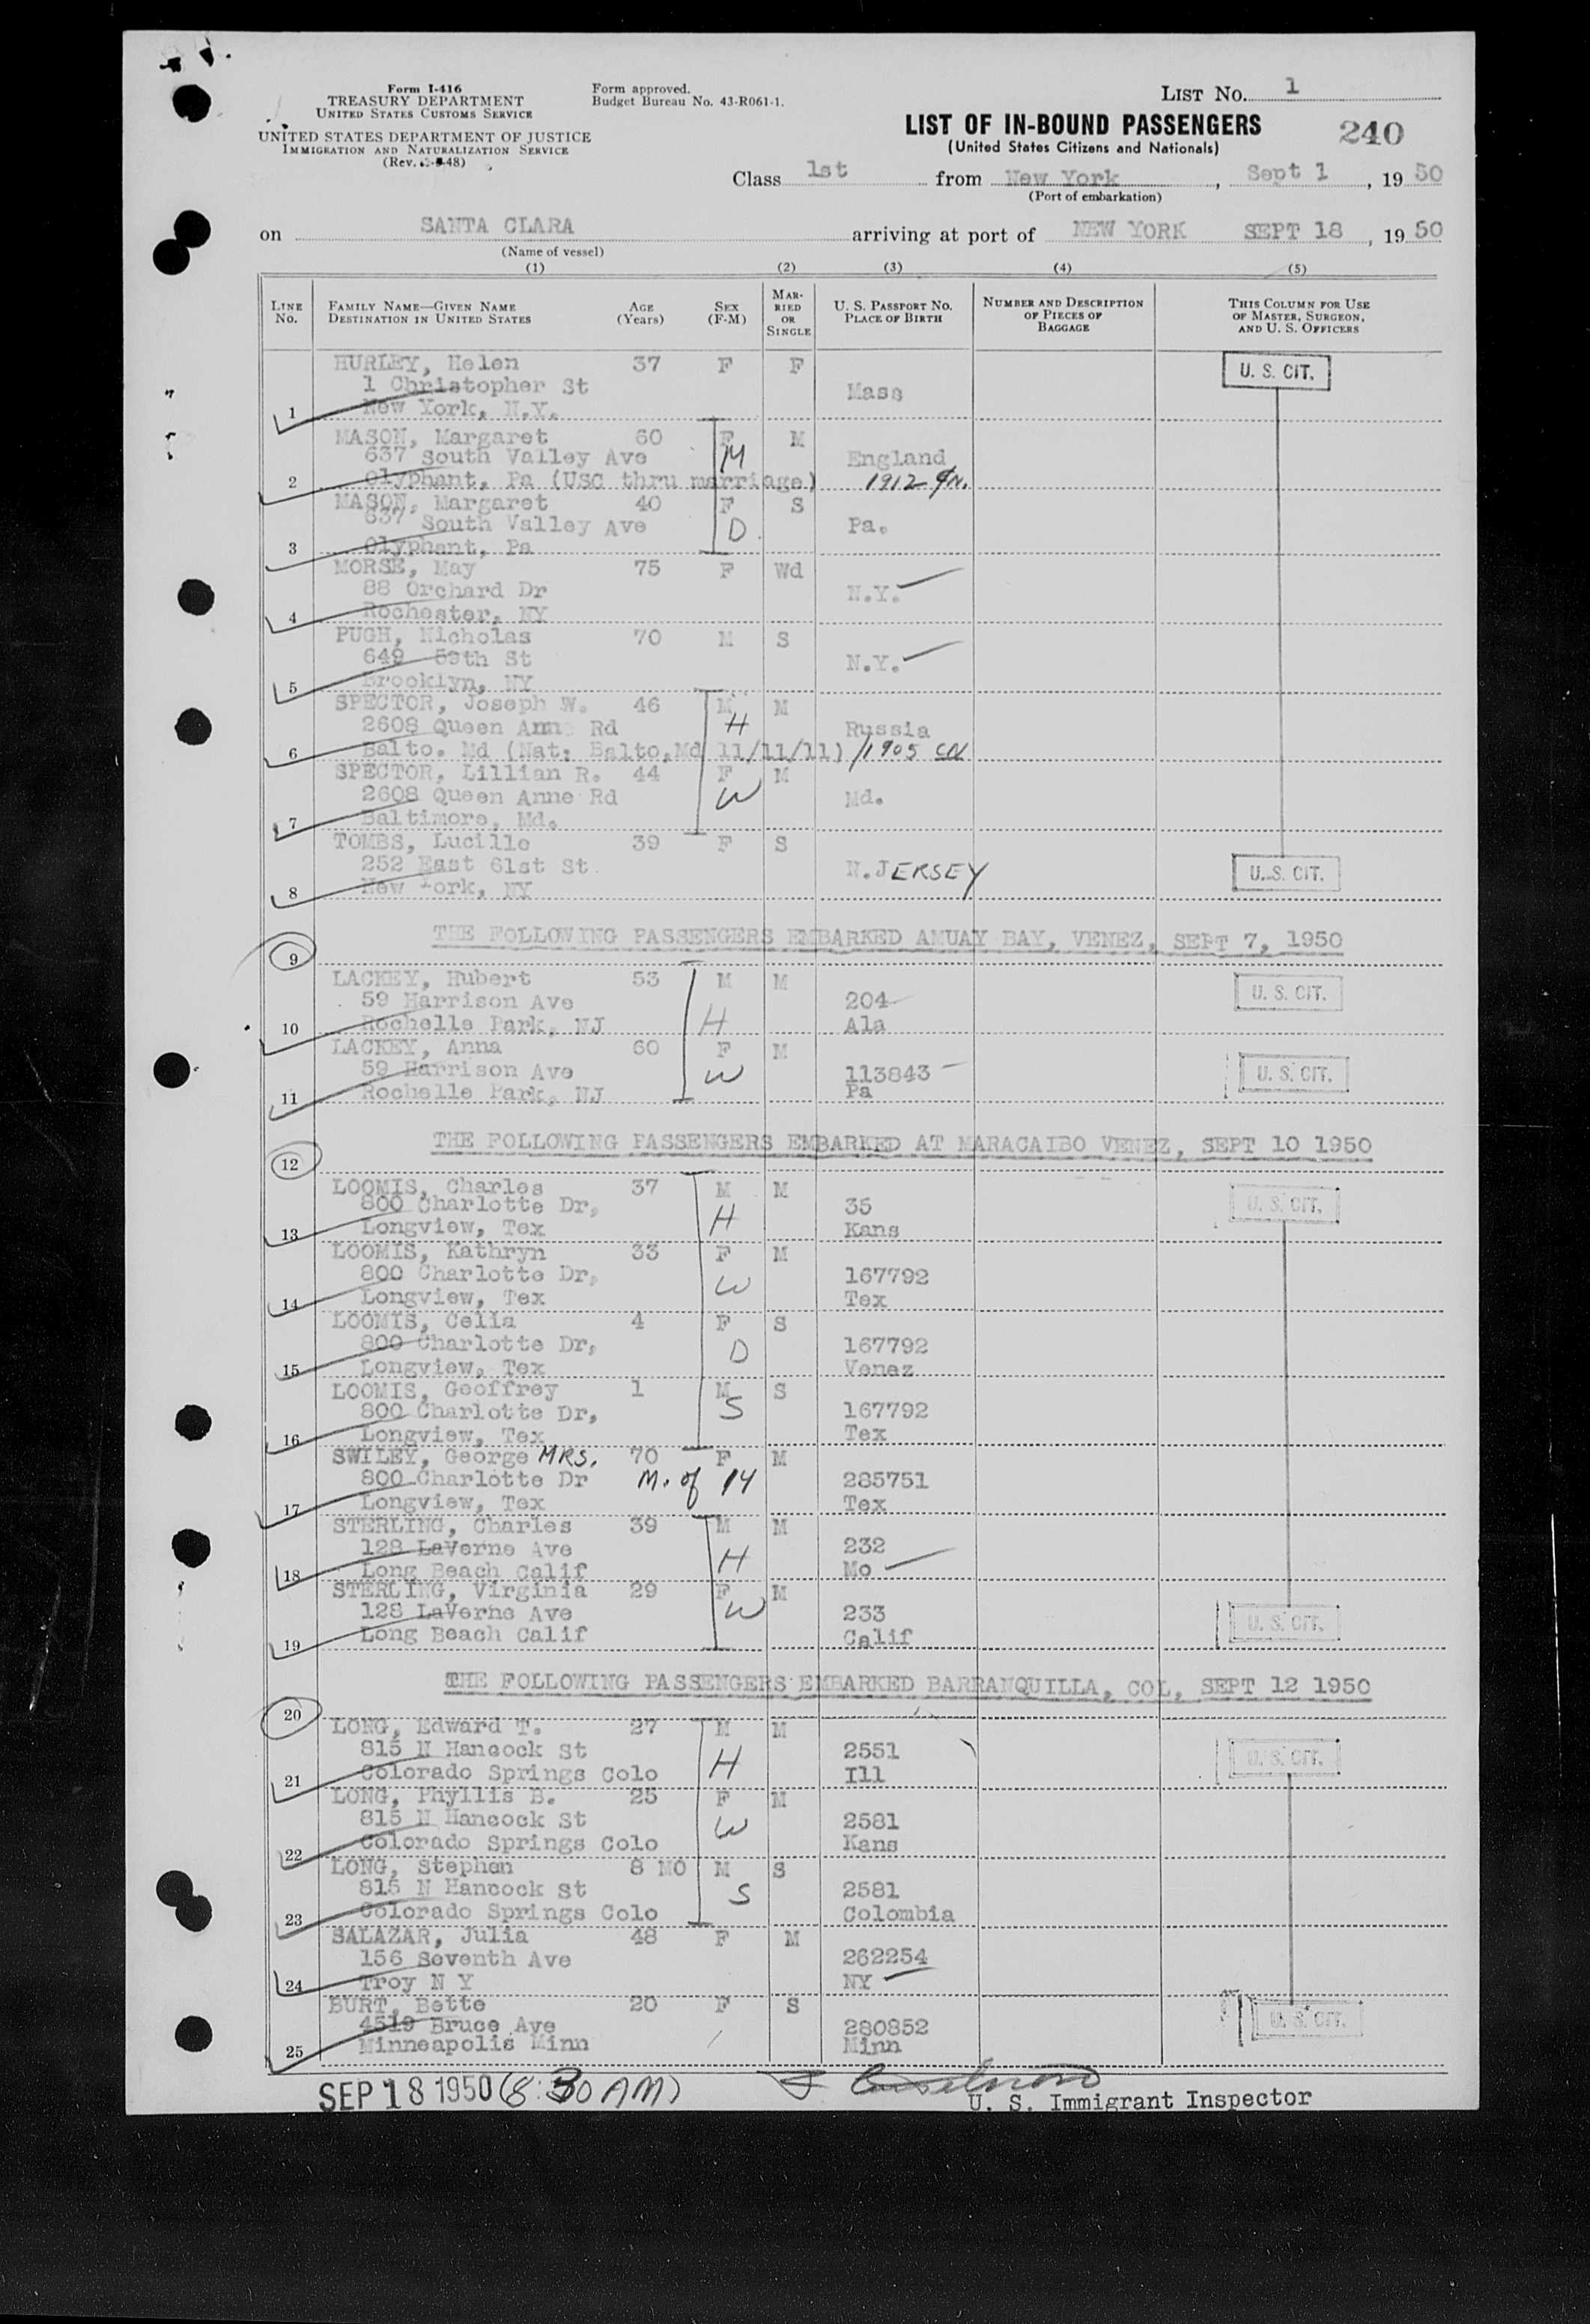 Form I-416
TREASURY DEPARTMENT
UNITED STATES CUSTOMS SERVICE
UNITED STATES DEPARTMENT OF JUSTICE
IMMIGRATION AND NATURALIZATION SERVICE
Form approved.
Budget Bureau No. 43-R061-1.
LIST No. 1
LIST OF IN-BOUND PASSENGERS
(United States Citizens and Nationals)
240
Class 1st from New York, Sept 1, 19 50
(Port of embarkation)
on SANTA CLARA arriving at port of NEW YORK SEPT 18, 19 50
(Name of vessel)
(1) (2) (3) (4) (5)
LINE No. FAMILY NAME—GIVEN NAME DESTINATION IN UNITED STATES AGE (Years) SEX (F-M) MARRIED OR SINGLE U. S. PASSPORT NO. PLACE OF BIRTH NUMBER AND DESCRIPTION OF PIECES OF BAGGAGE THIS COLUMN FOR USE OF MASTER, SURGEON, AND U. S. OFFICERS
HURLEY, Helen 37 F F U. S. CIT.
1 Christopher St Mass
1 New York, N.Y.
MASON, Margaret 60 F M
637 South Valley Ave M England
2 Olyphant, Pa (USC thru marriage) 1912
MASON, Margaret 40 F S
637 South Valley Ave D Pa.
3 Olyphant, Pa
MORSE, May 75 F Wd
88 Orchard Dr N.Y.
4 Rochester, NY
PUGH, Nicholas 70 M S
649 59th St N.Y.
5 Brooklyn, NY
SPECTOR, Joseph W. 46 M M
2608 Queen Anne Rd H Russia
6 Balto. Md (Nat: Balto,Md 11/11/11) 1905 CN
SPECTOR, Lillian R. 44 F M
2608 Queen Anne Rd W Md.
7 Baltimore, Md.
TOMBS, Lucille 39 F S
252 East 61st St. N.JERSEY U. S. CIT.
8 New York, NY
9 THE FOLLOWING PASSENGERS EMBARKED AMUAY BAY, VENEZ, SEPT 7, 1950
LACKEY, Hubert 53 M M U. S. CIT.
59 Harrison Ave 204
10 Rochelle Park, NJ H Ala
LACKEY, Anna 60 F M
59 Harrison Ave W 113843 U. S. CIT.
11 Rochelle Park, NJ Pa
12 THE FOLLOWING PASSENGERS EMBARKED AT MARACAIBO VENEZ, SEPT 10 1950
LOOMIS, Charles 37 M M U. S. CIT.
800 Charlotte Dr, H 35
13 Longview, Tex Kans
LOOMIS, Kathryn 33 F M
800 Charlotte Dr, W 167792
14 Longview, Tex Tex
LOOMIS, Celia 4 F S
800 Charlotte Dr, D 167792
15 Longview, Tex Venez
LOOMIS, Geoffrey 1 M S
800 Charlotte Dr, S 167792
16 Longview, Tex Tex
SWILEY, George MRS. 70 F M
800 Charlotte Dr M. of 14 285751
17 Longview, Tex Tex
STERLING, Charles 39 M M
128 LaVerne Ave H 232
18 Long Beach Calif Mo
STERLING, Virginia 29 F M
128 LaVerne Ave W 233 U. S. CIT.
19 Long Beach Calif Calif
20 THE FOLLOWING PASSENGERS EMBARKED BARRANQUILLA, COL, SEPT 12 1950
LONG, Edward T. 27 M M
815 N Hancock St H 2551 U. S. CIT.
21 Colorado Springs Colo Ill
LONG, Phyllis B. 25 F M
815 N Hancock St W 2581
22 Colorado Springs Colo Kans
LONG, Stephen 8 MO M S
815 N Hancock St S 2581
23 Colorado Springs Colo Colombia
SALAZAR, Julia 48 F M
156 Seventh Ave 262254
24 Troy N Y NY
BURT, Bette 20 F S
4519 Bruce Ave 280852 U. S. CIT.
25 Minneapolis Minn Minn
SEP 18 1950 (8:30 AM)
U. S. Immigrant Inspector